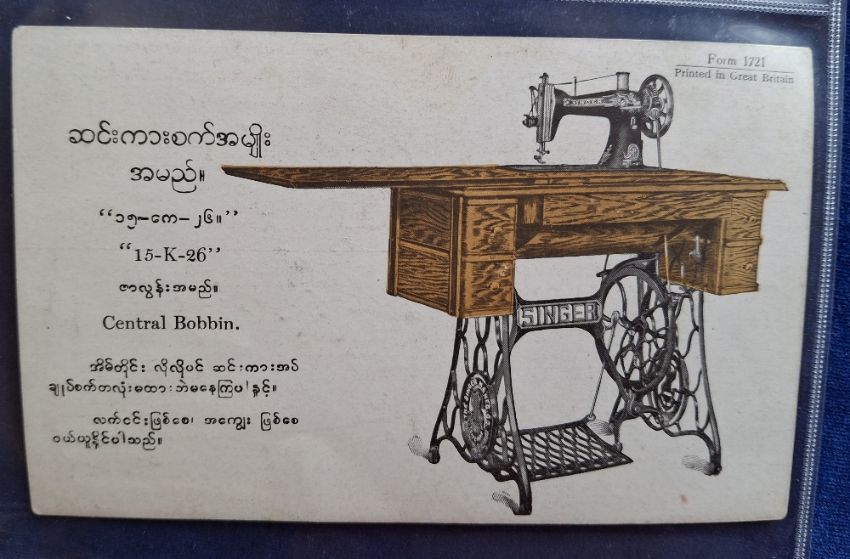 Form 1721
Printed in Great Britain
ဆင်းကားစက်အမျိုး
အမည်။
“၁၅–ကေ–၂၆။”
“15-K-26”
ဇာလွန်းအမည်။
Central Bobbin.
အိမ်တိုင်း လိုလိုပင် ဆင်းကားအပ်
ချုပ်စက်တလုံးမထားဘဲမနေကြပါနှင့်။
လက်ငင်းဖြစ်စေ၊ အကြွေး ဖြစ်စေ
ဝယ်ယူနိုင်ပါသည်။
SINGER
SINGER